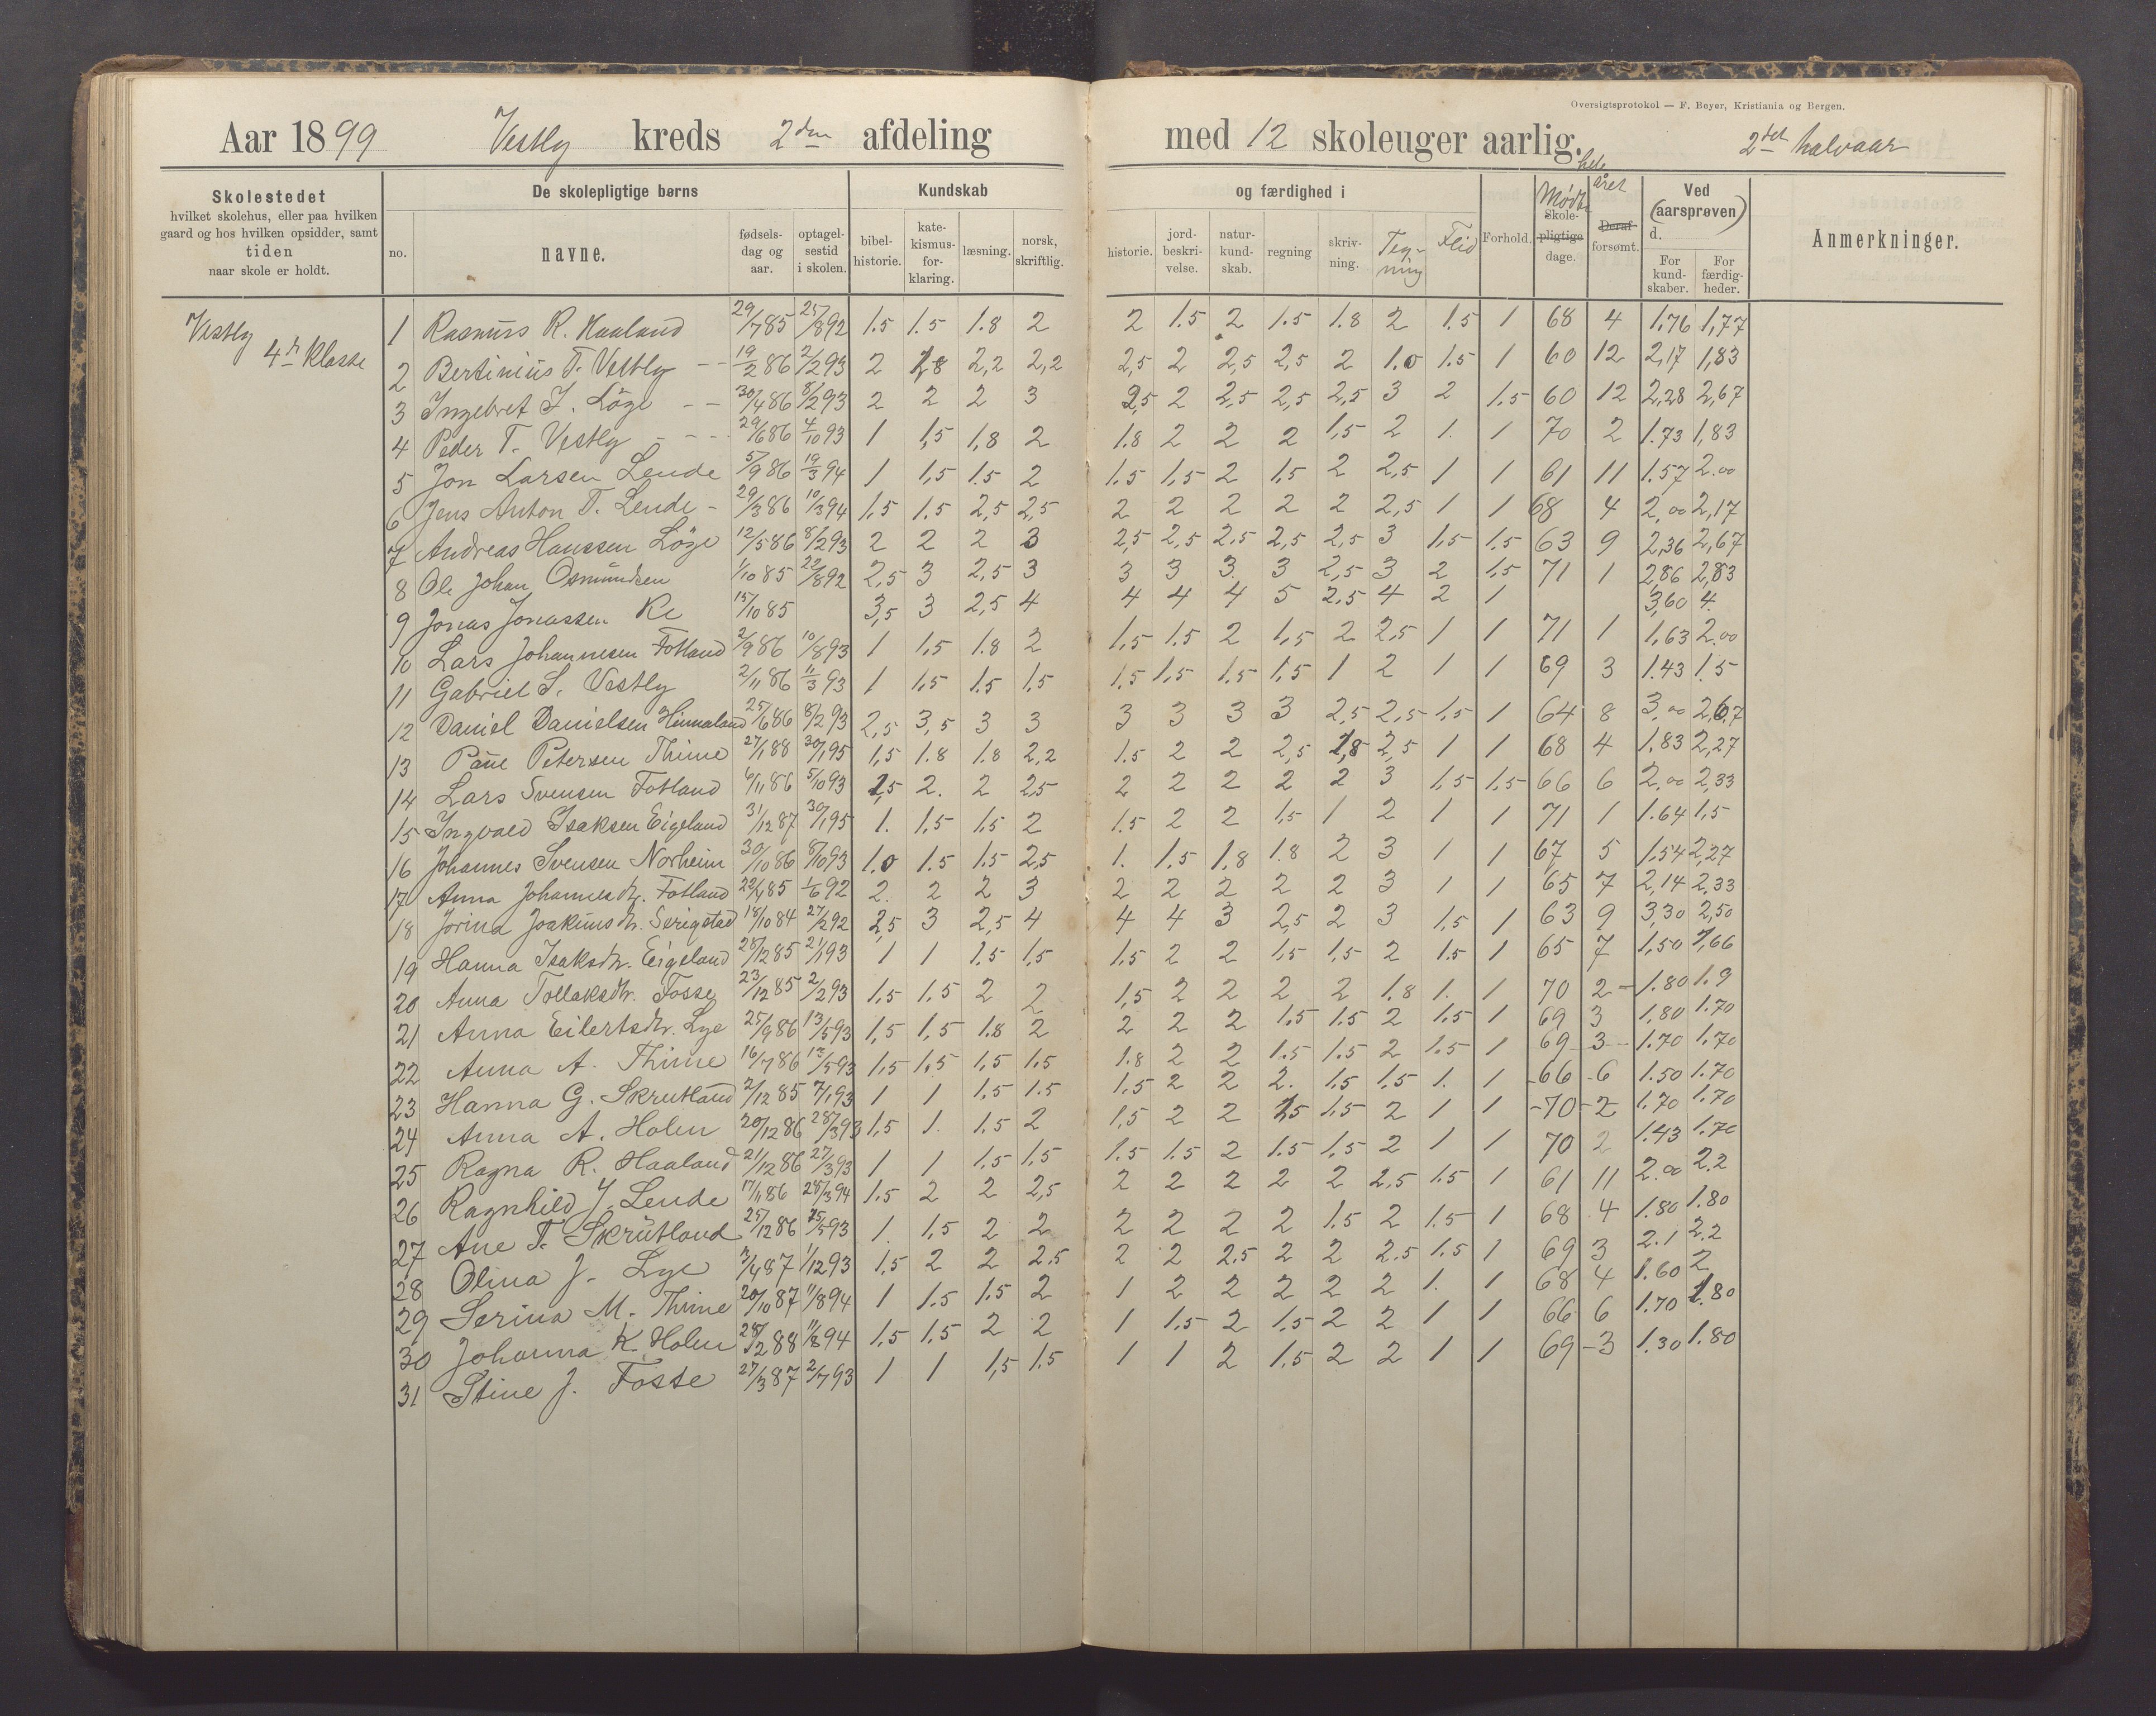 Oversigtsprotokol — F. Beyer, Kristiania og Bergen.
Aar 1899 Vestly kreds 2den afdeling med 12 skoleuger aarlig. 2det halvaar
Skolestedet
hvilket skolehus, eller paa hvilken
gaard og hos hvilken opsidder, samt
tiden
naar skole er holdt.
De skolepligtige børns
no. navne. fødsels-dag og aar. optagel-sestid i skolen.
Kundskab og færdighed i
bibel-historie. kate-kismus-for-klaring. læsning. norsk, skriftlig. historie. jord-beskri-velse. natur-kund-skab. regning skriv-ning. Teg-ning Flid Forhold. Mødte Skole-pligtige dage. hele året Deraf forsømt.
Ved (aarsprøven) d.
For kund-skaber. For færdig-heder.
Anmerkninger.
Vestly
4r Klasse
1 Rasmus R. Haaland 29/7 85 25/8 92 1.5 1.5 1.8 2 2 1.5 2 1.5 1.8 2 1.5 1 68 4 1,76 1,77
2 Bertinius T. Vestly -- 19/2 86 2/2 93 2 1,8 2,2 2,2 2,5 2 2,5 2,5 2 1.0 1.5 1 60 12 2,17 1,83
3 Ingebret J. Löge -- 30/4 86 8/2 93 2 2 2 3 2,5 2 2,5 2,5 2,5 3 2 1.5 60 12 2,28 2,67
4 Peder T. Vestly --- 29/6 86 4/10 93 1 1,5 1,8 2 1.8 2 2 2 1,5 2 1. 1 70 2 1.73 1,83
5 Jon Larsen Lende 5/9 86 19/3 94 1 1,5 1.5 2 1.5 1,5 2 1,5 2 2,5 1 1 61 11 1.57 2.00
6 Jens Anton T. Lende - 29/3 86 10/3 94 1,5 1.5 2,5 2,5 2 2 2 2 2 2,5 1 1 68 4 2,00 2,17
7 Andreas Hanssen Löge 12/5 86 8/2 93 2 2 2 3 2,5 2,5 2.5 2,5 2,5 3 1,5 1.5 63 9 2,36 2,67
8 Ole Johan Osmundsen 1/10 85 22/8 92 2,5 3 2,5 3 3 3 3. 3 2,5 3 2 1,5 71 1 2,86 2,83
9 Jonas Jonassen Re 15/10 85 3,5 3 2,5 4 4 4 4 5 2.5 4 2 1 3,60 4.
10 Lars Johannesen Fotland 2/9 86 10/8 93 1 1,5 1.8 2 1,5 1.5 2 1,5 2 2,5 1 1 71 1 1,63 2.00
11 Gabriel S. Vestly 2/11 86 11/3 93 1 1,5 1.5 1,5 1,5 1,5 1.5 1,5 1 2 1 1 69 3 1.43 1.5
12 Daniel Danielsen Hinnaland 25/6 86 8/2 93 2,5 3,5 3 3 3 3 3 3 2,5 2,5 1,5 1 64 8 3,00 2,67
13 Paul Petersen Thime 27/1 88 30/1 95 1,5 1.8 1.8 2,2 1.5 2 2 2,5 1,8 2,5 1 1 68 4 1.83 2,27
14 Lars Svensen Fotland 6/11 86 5/10 93 1,5 2. 2 2,5 2 2 2 2 2 3 1,5 1,5 66 6 2,00 2,33
15 Ingvald Isaksen Eigeland 31/12 87 30/1 95 1. 1,5 1,5 2 1.5 2 2 1,5 1 2 1 1 71 1 1.64 1,5
16 Johannes Svensen Norheim 30/10 86 8/10 93 1.0 1.5 1.5 2,5 1. 1,5 1,8 1.8 2 3 1 1 67 5 1,54 2,27
17 Anna Johannesdtr. Fotland 22/1 85 1/6 92 2. 2 2 3 2 2 2 2 2 3 1 1 65 7 2,14 2,33
18 Jorina Joakimsdtr. Serigstad 18/10 84 27/2 92 2,5 3 2,5 4 4 4 3 2,5 2 3 1,5 1 63 9 3,30 2,50
19 Hanna Isaksdtr. Eigeland 28/12 85 21/1 93 1 1 1.5 1,5 1,5 2 2 1.5 1.5 2 1.5 1 65 7 1,50 1,66
20 Anna Tollaksdtr. Fosse 23/12 85 2/2 93 1,5 1.5 2 2 1,5 2 2 2 2 1.8 1. 1 70 2 - 1.80 1.9
21 Anna Eilertsdtr. Lye 25/9 86 13/5 93 1,5 1,5 1.8 2 2 2 2 1.5 1.5 2 1.5 1 69 3 1,80 1.70
22 Anna A. Thime 16/7 86 13/5 93 1,5 1,5 1,5 1,5 1.8 2 2 1.5 1.5 2 1.5 1 69 - 3 - 1.70 1,70
23 Hanna G. Skrutland 2/12 85 7/1 93 1 1 1.5 1.5 1,5 2 2 2. 1.5 1.5 1. 1 - 66 - 6 1.50 1.70
24 Anna A. Holen 20/12 86 28/3 93 1,5 1. 1.5 2 1,5 2 2 1,5 1.5 2 1 1 - 70 - 2 1.70 1.70
25 Ragna R. Haaland 21/12 86 27/3 93 1 1 1.5 1.5 1.5 1.5 2 1.5 1,5 2 1 1 70 2 1.43 1.70
26 Ragnhild J. Lende 17/11 86 28/3 94 1.5 2 2 2,5 2 2 2 2 2 2.5 1.5 1 61 11 2.00 2.2
27 Ane T. Skrutland 25/12 86 25/5 93 1. 1,5 2 2 2 2 2 2 1.5 2 1.5 1 68 4 1.80 1.80
28 Olina J. Lye 3/4 87 1/12 93 1,5 2 2 2.5 2 2 2.5 2 2 2.5 1.5 1 69 3 2.1 2.2
29 Serina M. Thime 20/10 87 11/8 94 1 1.5 1.5 2 1 2 2 2 2 2 1. 1 68 4 1.60 2
30 Johanna K. Holen 28/2 88 11/8 94 1,5 1,5 2 2 1 1.5 2 1.5 2 2 1 1 66 6 1.70 1.80
31 Stine J. Fosse 27/3 87 2/7 93 1 1 1,5 1.5 1 1 2 1.5 2 2 1 1 69 - 3 1.30 1.80